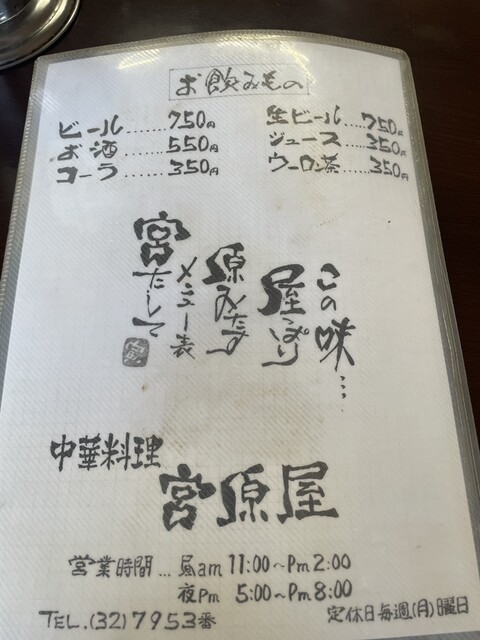 お飲みもの
ビール......750円
お酒......550円
コーラ......350円
生ビール......750円
ジュース......350円
ウーロン茶......350円
この味...
屋っぱり
原みたす
メニュー表
宮たして
中華料理
宮原屋
営業時間...昼am 11:00~Pm 2:00
夜Pm 5:00~Pm 8:00
TEL.(32)7953番
定休日毎週(月)曜日